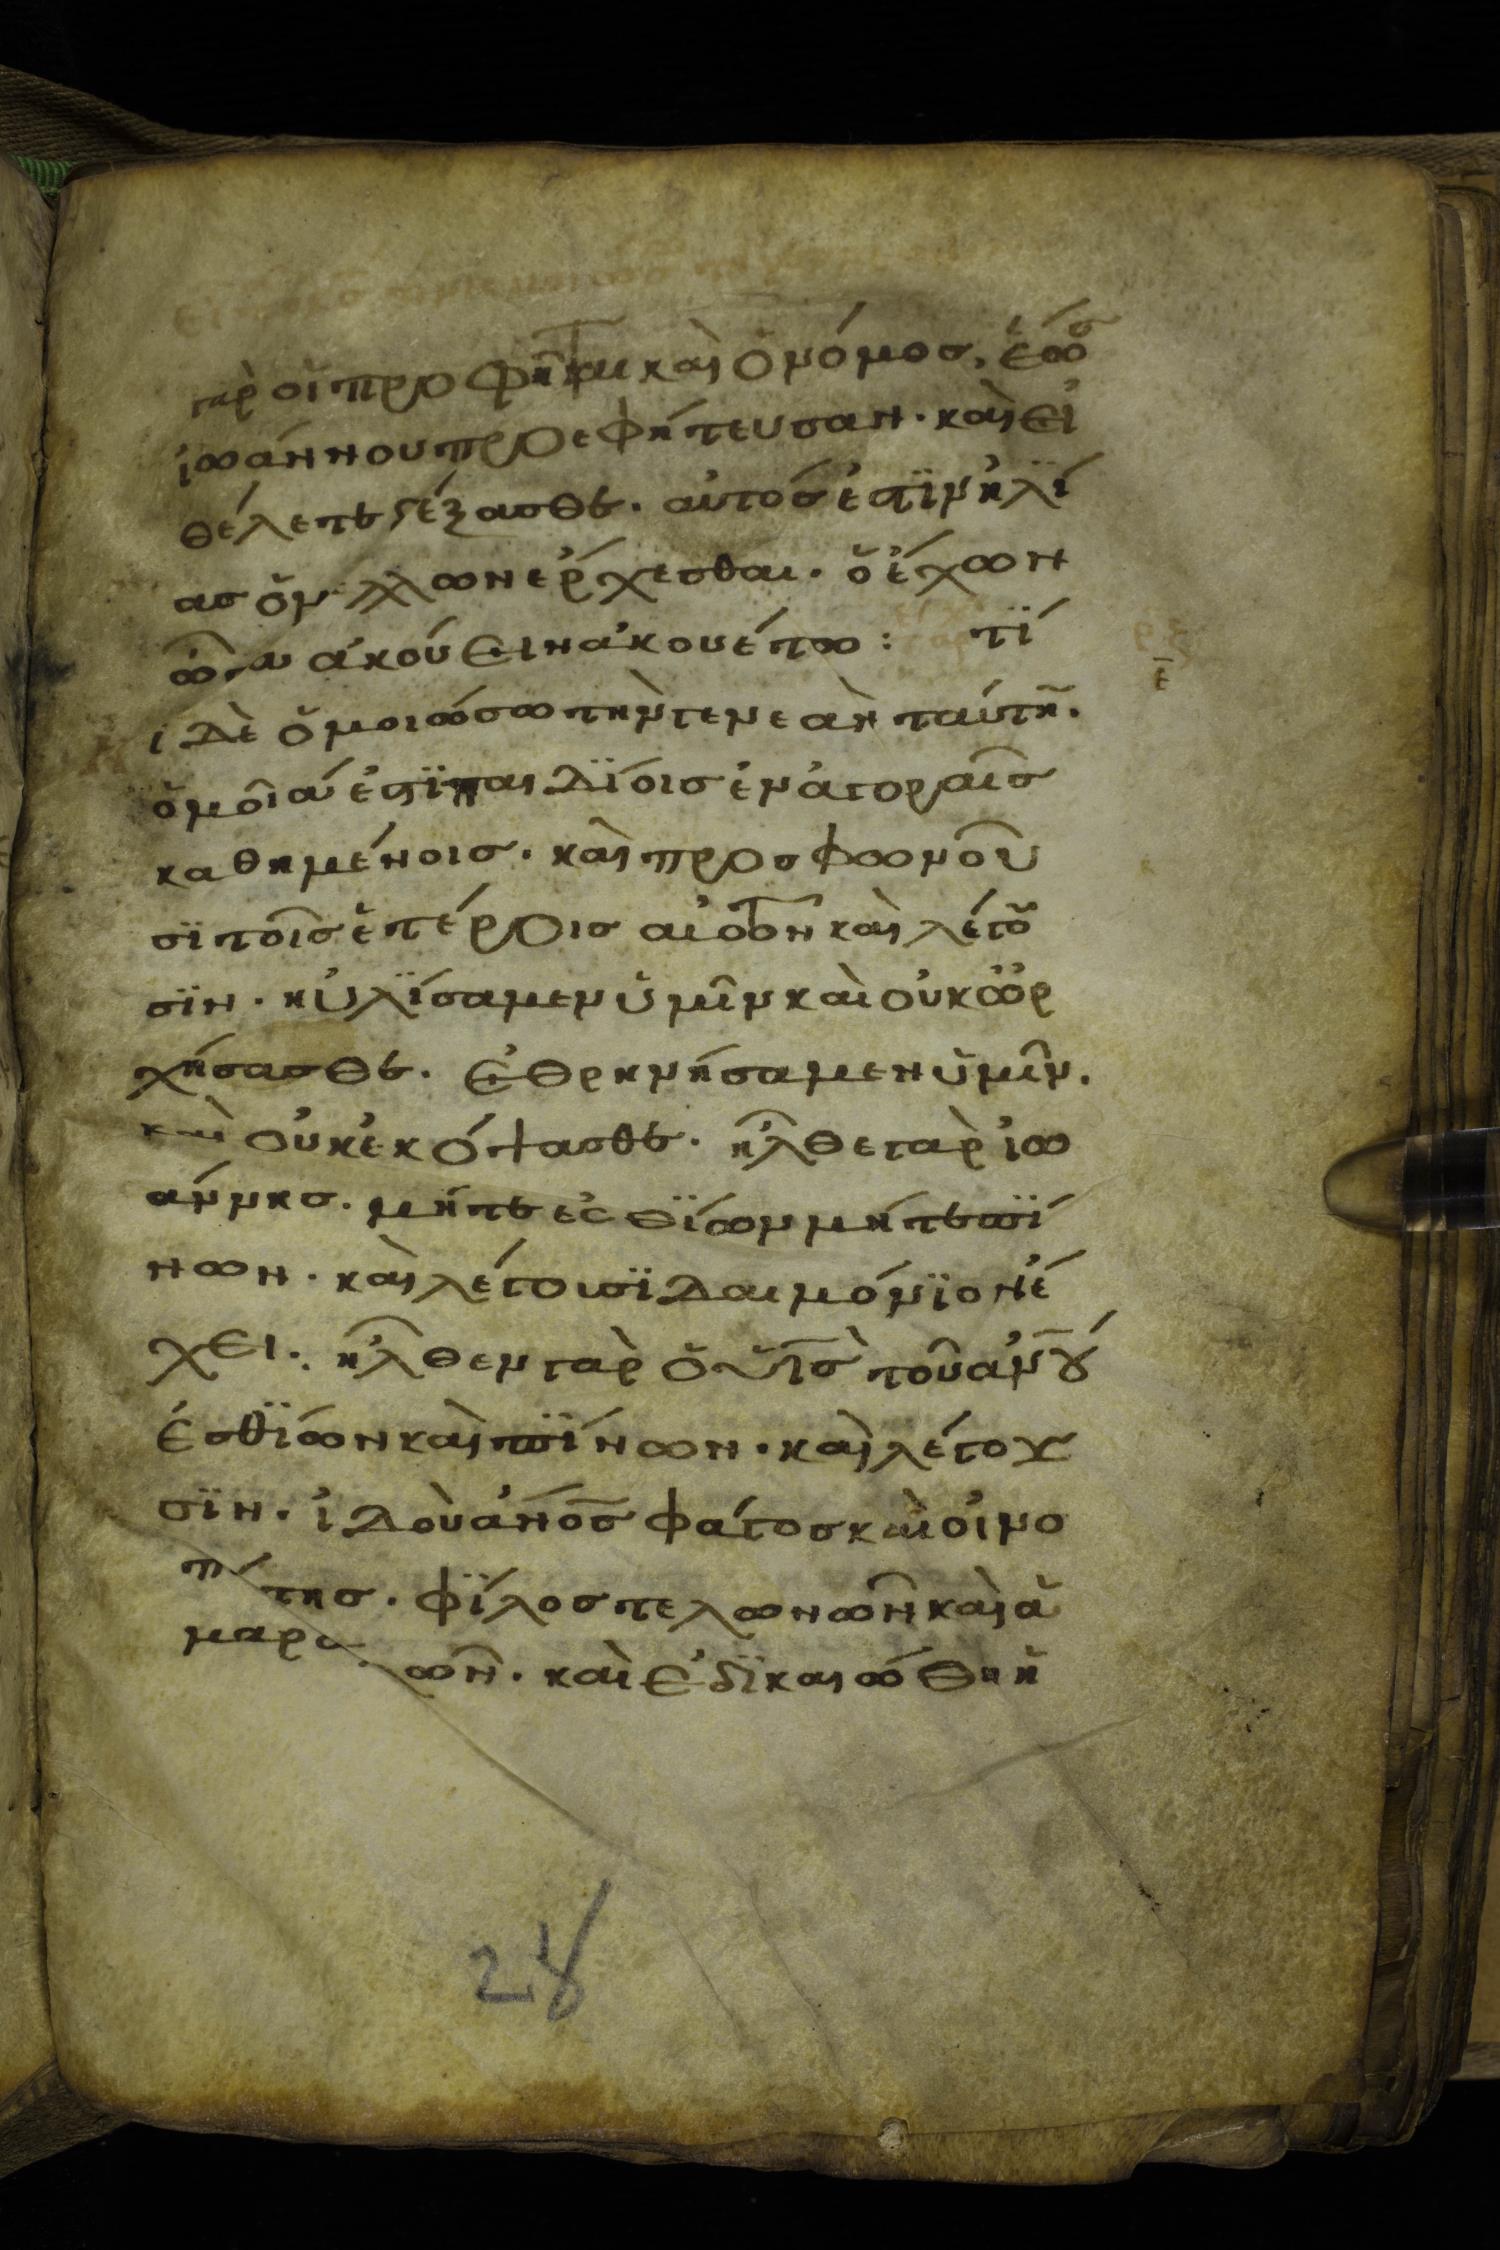 γὰρ οἱ προφῆται καὶ ὁ νόμος, ἕως
ἰωάννου προεφήτευσαν· καὶ εἰ
θέλετε δέξασθε· αὐτός ἐστϊν ἠλΐ
ας ὁ μέλλων ἐρχεσθαι· ὁ ἔχων
ὦτα ἀκούειν ἀκουέτω: τΐ
ι δὲ ὁμοιώσω τὴν γενεὰν ταύτη̃·
ὁμοῖα ἐστῒ παιδΐοις ἐν ἀγοραῖς
καθημένοις· καὶ προσφωνοῦ
σϊ τοῖς ἑτέροις αὐτῶν καὶ λέγου
σϊν· ηὐλΐσαμεν ὑμῖν καὶ οὐκ ὠρ
χήσασθε· ἐθρηνήσαμεν ὑμῖν·
καὶ οὐκ ἐκόψασθε· ἦλθε γὰρ ἰω
άννης· μήτε ἐσθΐων μήτε πΐ
νων· καὶ λέγουσϊ δαιμόνϊον ἔ
χει·. ἦλθεν γὰρ ὁ υἱ̅ς̅ τοῦ ἀν̅ου̅
ἐσθΐων καὶ πΐνων· καὶ λέγου
σϊν· ἰδοὺ ἀν̅ο̅ς̅ φάγος καὶ οἰνο
πότης· φΐλος τελωνῶν καὶ ἁ
μαρτωλῶν· καὶ ἐδϊκαιώθη ἡ
28